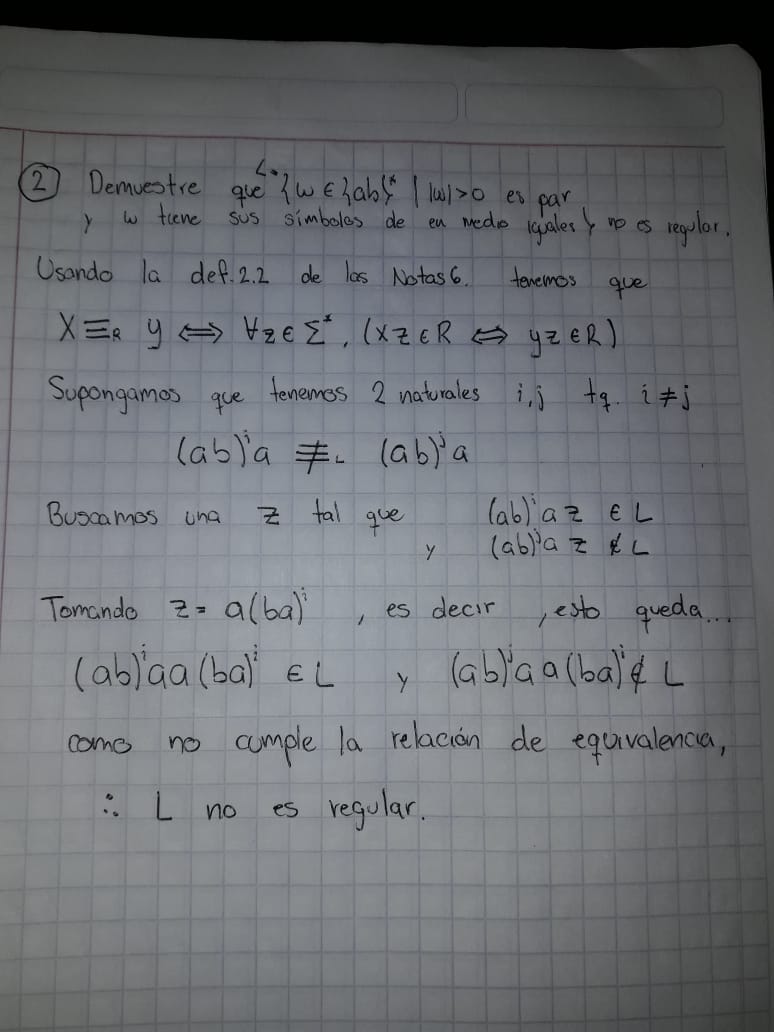 ② Demuestre que L: {w ∈ }ab}* | |w|>0 es par
y w tiene sus símbolos de en medio iguales} no es regular.
Usando la def. 2.2 de las Notas 6. tenemos que
X ≡R y ⟺ ∀z ∈ Σ*, (xz ∈ R ⟺ yz ∈ R)
Supongamos que tenemos 2 naturales i,j tq. i ≠ j
(ab)ⁱa ≢L (ab)ʲa
Buscamos una z tal que (ab)ⁱa z ∈ L
y (ab)ʲa z ∉ L
Tomando z = a(ba)ⁱ , es decir , esto queda...
(ab)ⁱaa(ba)ⁱ ∈ L y (ab)ʲaa(ba)ⁱ ∉ L
como no cumple la relación de equivalencia,
∴ L no es regular.